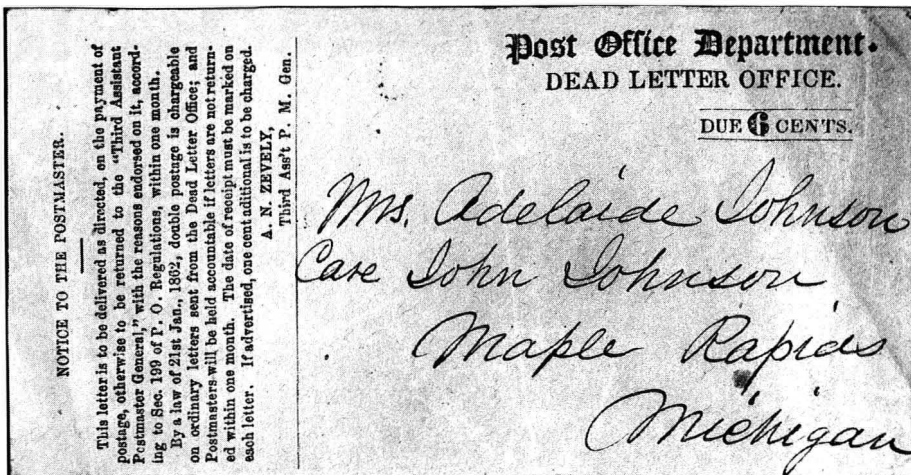 NOTICE TO THE POSTMASTER.
This letter is to be delivered as directed, on the payment of
postage, otherwise to be returned to the "Third Assistant
Postmaster General," with the reasons endorsed on it, accord-
ing to Sec. 199 of P. O. Regulations, within one month.
By a law of 21st Jan., 1862, double postage is chargeable
on ordinary letters sent from the Dead Letter Office; and
Postmasters will be held accountable if letters are not return-
ed within one month. The date of receipt must be marked on
each letter. If advertised, one cent aditional is to be charged.
A. N. ZEVELY,
Third Ass't P. M. Gen.
Post Office Department.
DEAD LETTER OFFICE.
DUE 6 CENTS.
Mrs. Adelaide Johnson
Care John Johnson
Maple Rapids
Michigan